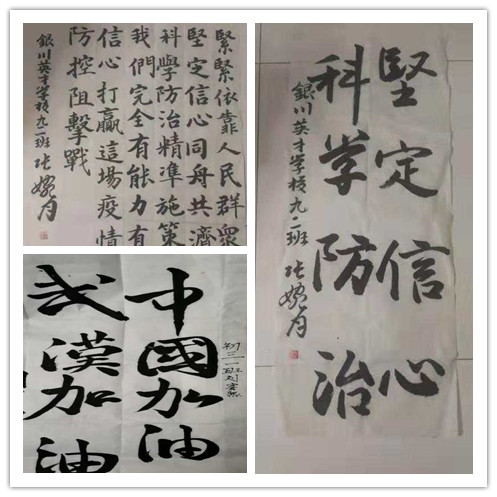 緊緊依靠人民群眾
堅定信心同舟共濟
科學防治精準施策
我們完全有能力有
信心打贏這場疫情
防控阻擊戰
銀川英才学校九二班 张婉月
堅定信心
科学防治
銀川英才学校九二班 张婉月
初三一班刘
中國加油
武漢加油